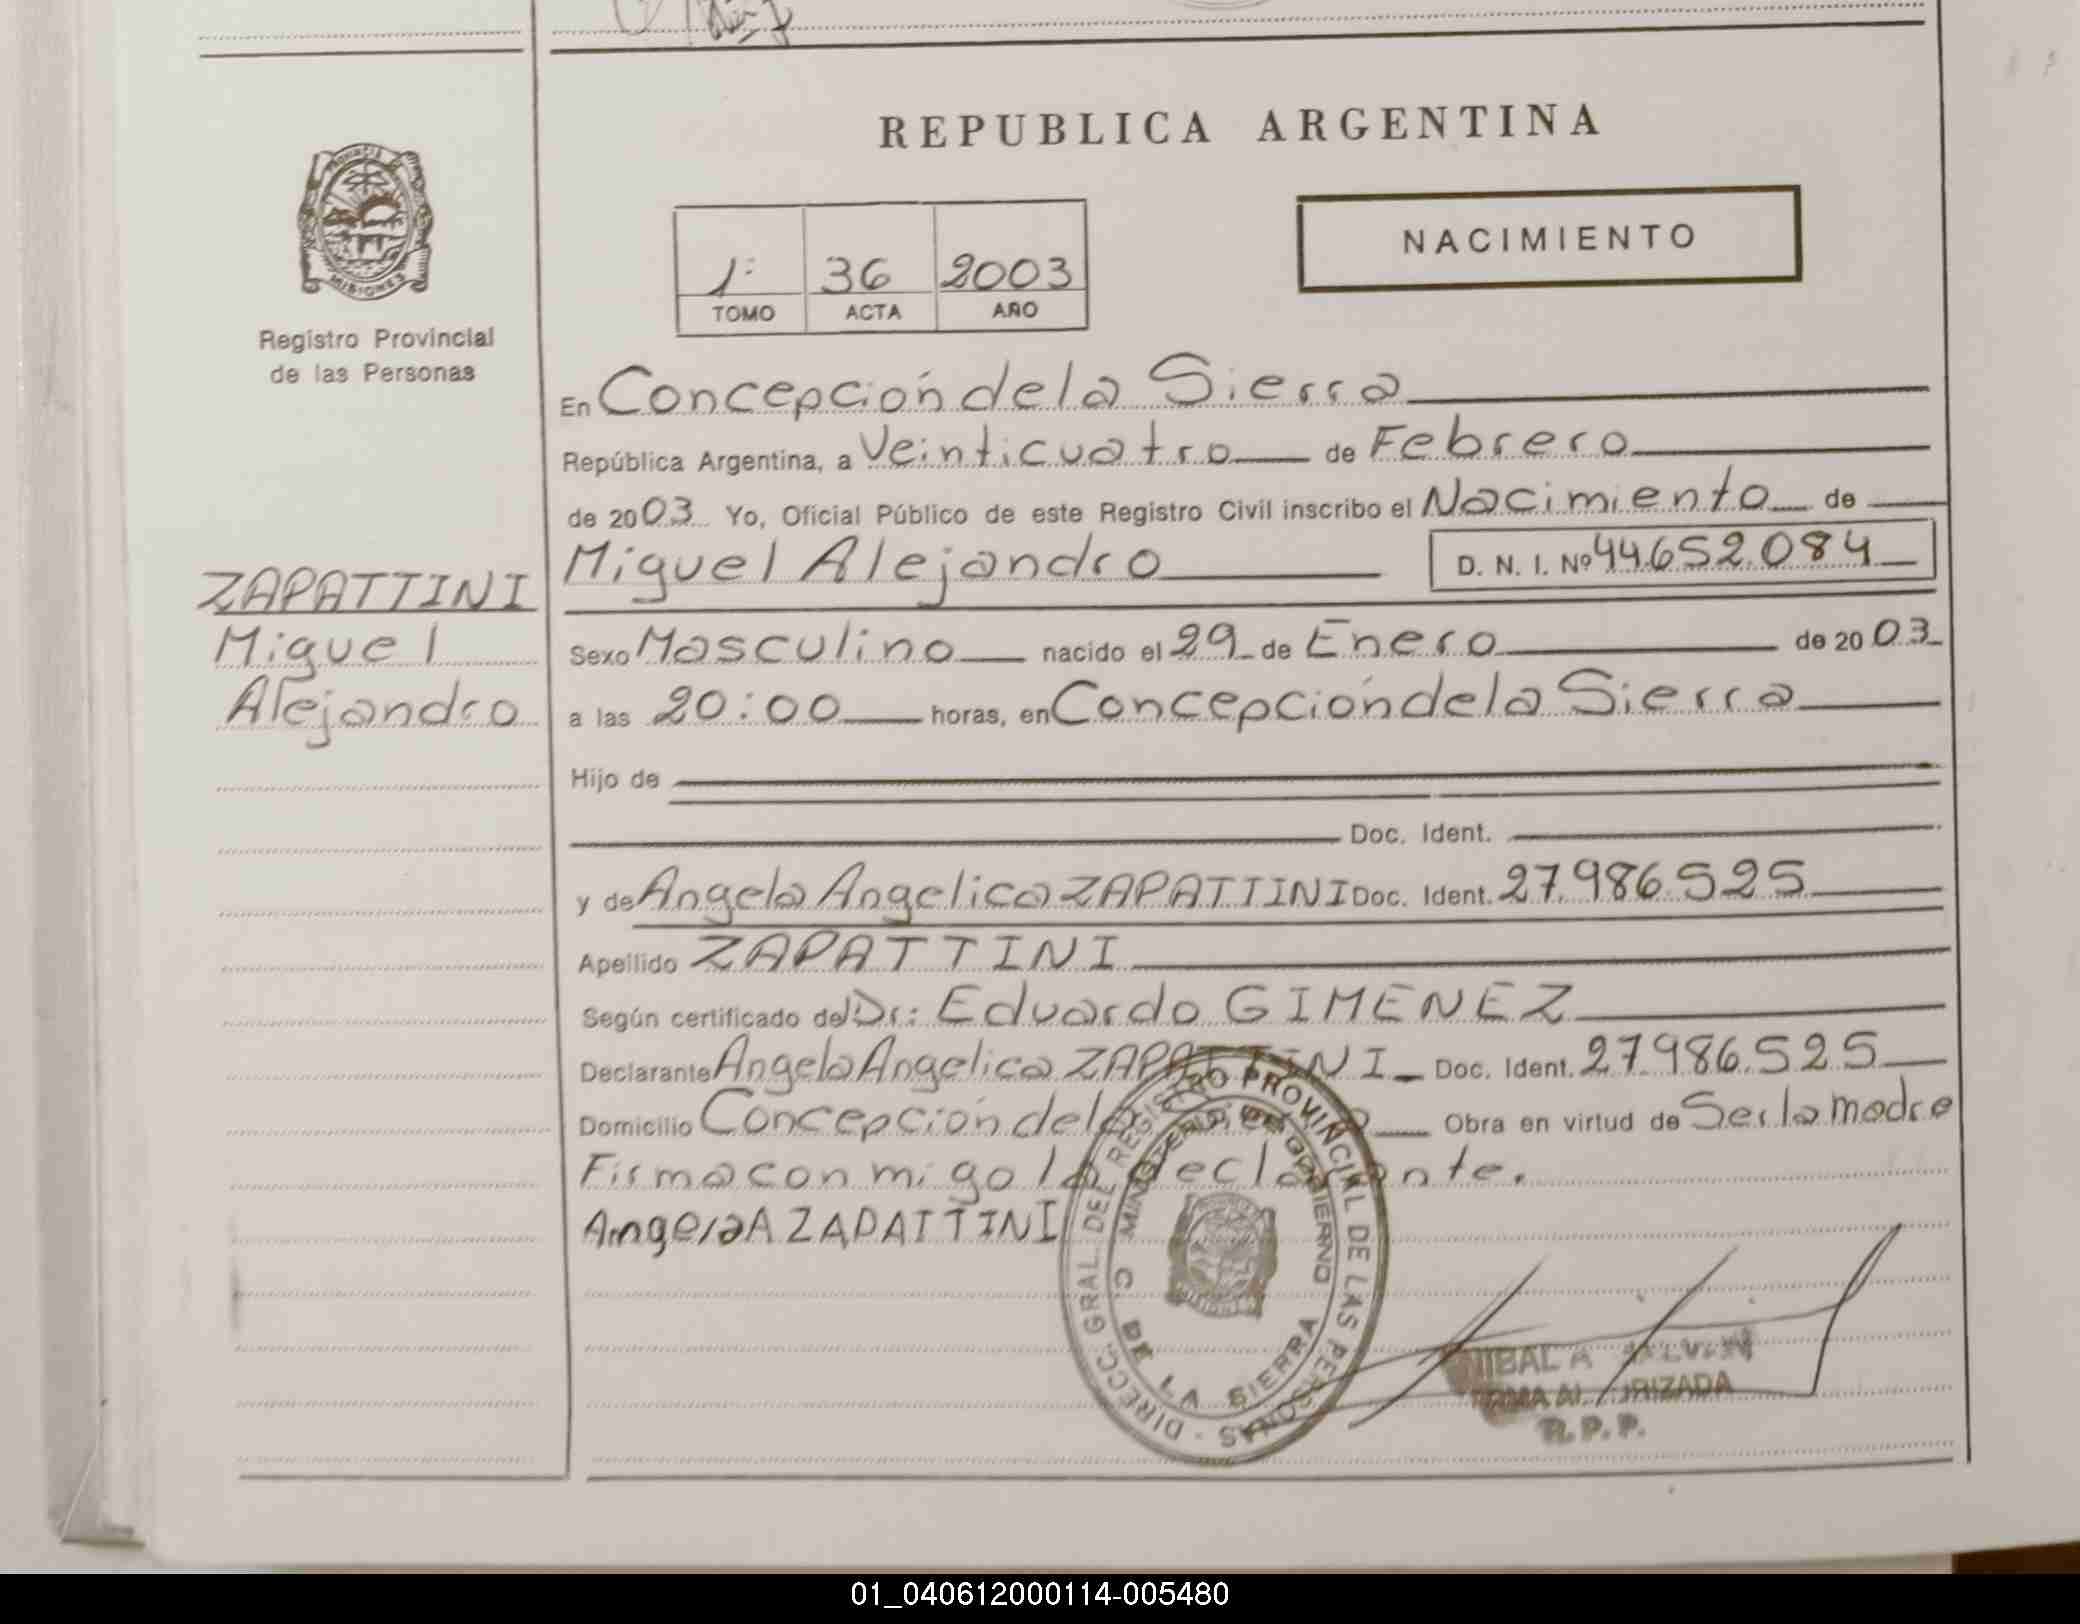 REPUBLICA ARGENTINA
NACIMIENTO
1º 36 2003
TOMO ACTA AÑO
PROVINCIA DE MISIONES
Registro Provincial
de las Personas
ZAPATTINI
Miguel
Alejandro
En Concepción de la Sierra
República Argentina, a Veinticuatro de Febrero
de 2003 Yo, Oficial Público de este Registro Civil inscribo el Nacimiento de
Miguel Alejandro D. N. I. Nº 44.652.084
Sexo Masculino nacido el 29 de Enero de 2003
a las 20:00 horas, en Concepción de la Sierra
Hijo de
Doc. Ident.
y de Angela Angelica ZAPATTINI Doc. Ident. 27.986.525
Apellido ZAPATTINI
Según certificado del Dr: Eduardo GIMENEZ
Declarante Angela Angelica ZAPATTINI Doc. Ident. 27.986.525
Domicilio Concepción de la Sierra Obra en virtud de Ser la madre
Firma conmigo la declarante.
Angela A ZAPATTINI
DIRECC. GRAL. DEL REGISTRO PROVINCIAL DE LAS PERSONAS
MINISTERIO DE GOBIERNO
C. DE LA SIERRA
FIRMA AUTORIZADA
R.P.P.
01_040612000114-005480